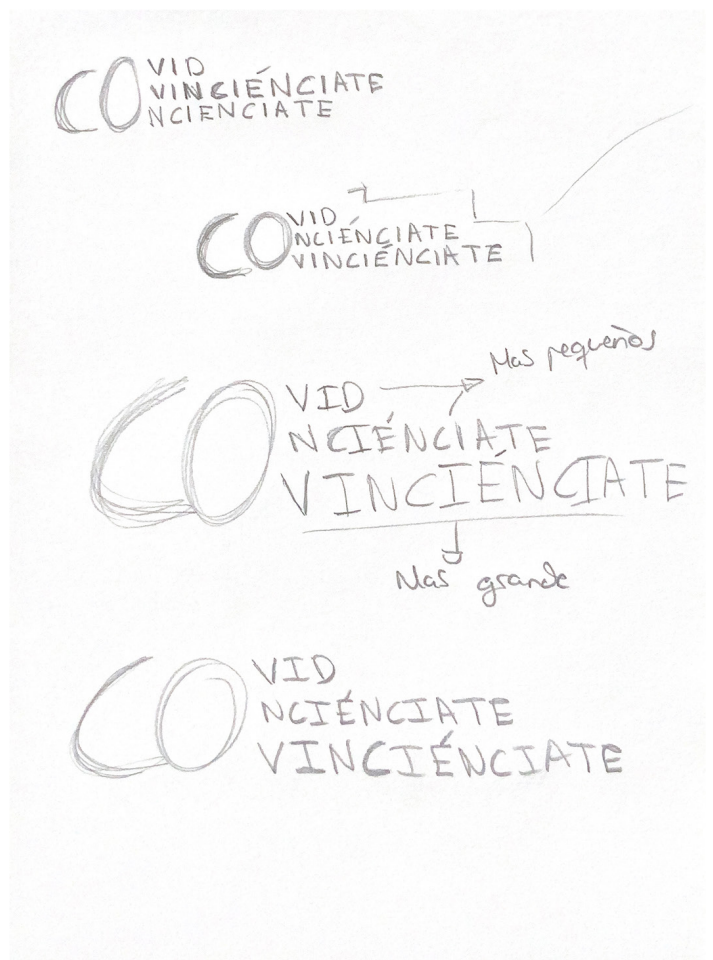 CO VID
VINCIÉNCIATE
NCIENCIATE
CO VID
NCIÉNCIATE
VINCIÉNCIATE
Mas pequeños
CO VID
NCIÉNCIATE
VINCIÉNCIATE
Mas grande
CO VID
NCIÉNCIATE
VINCIÉNCIATE